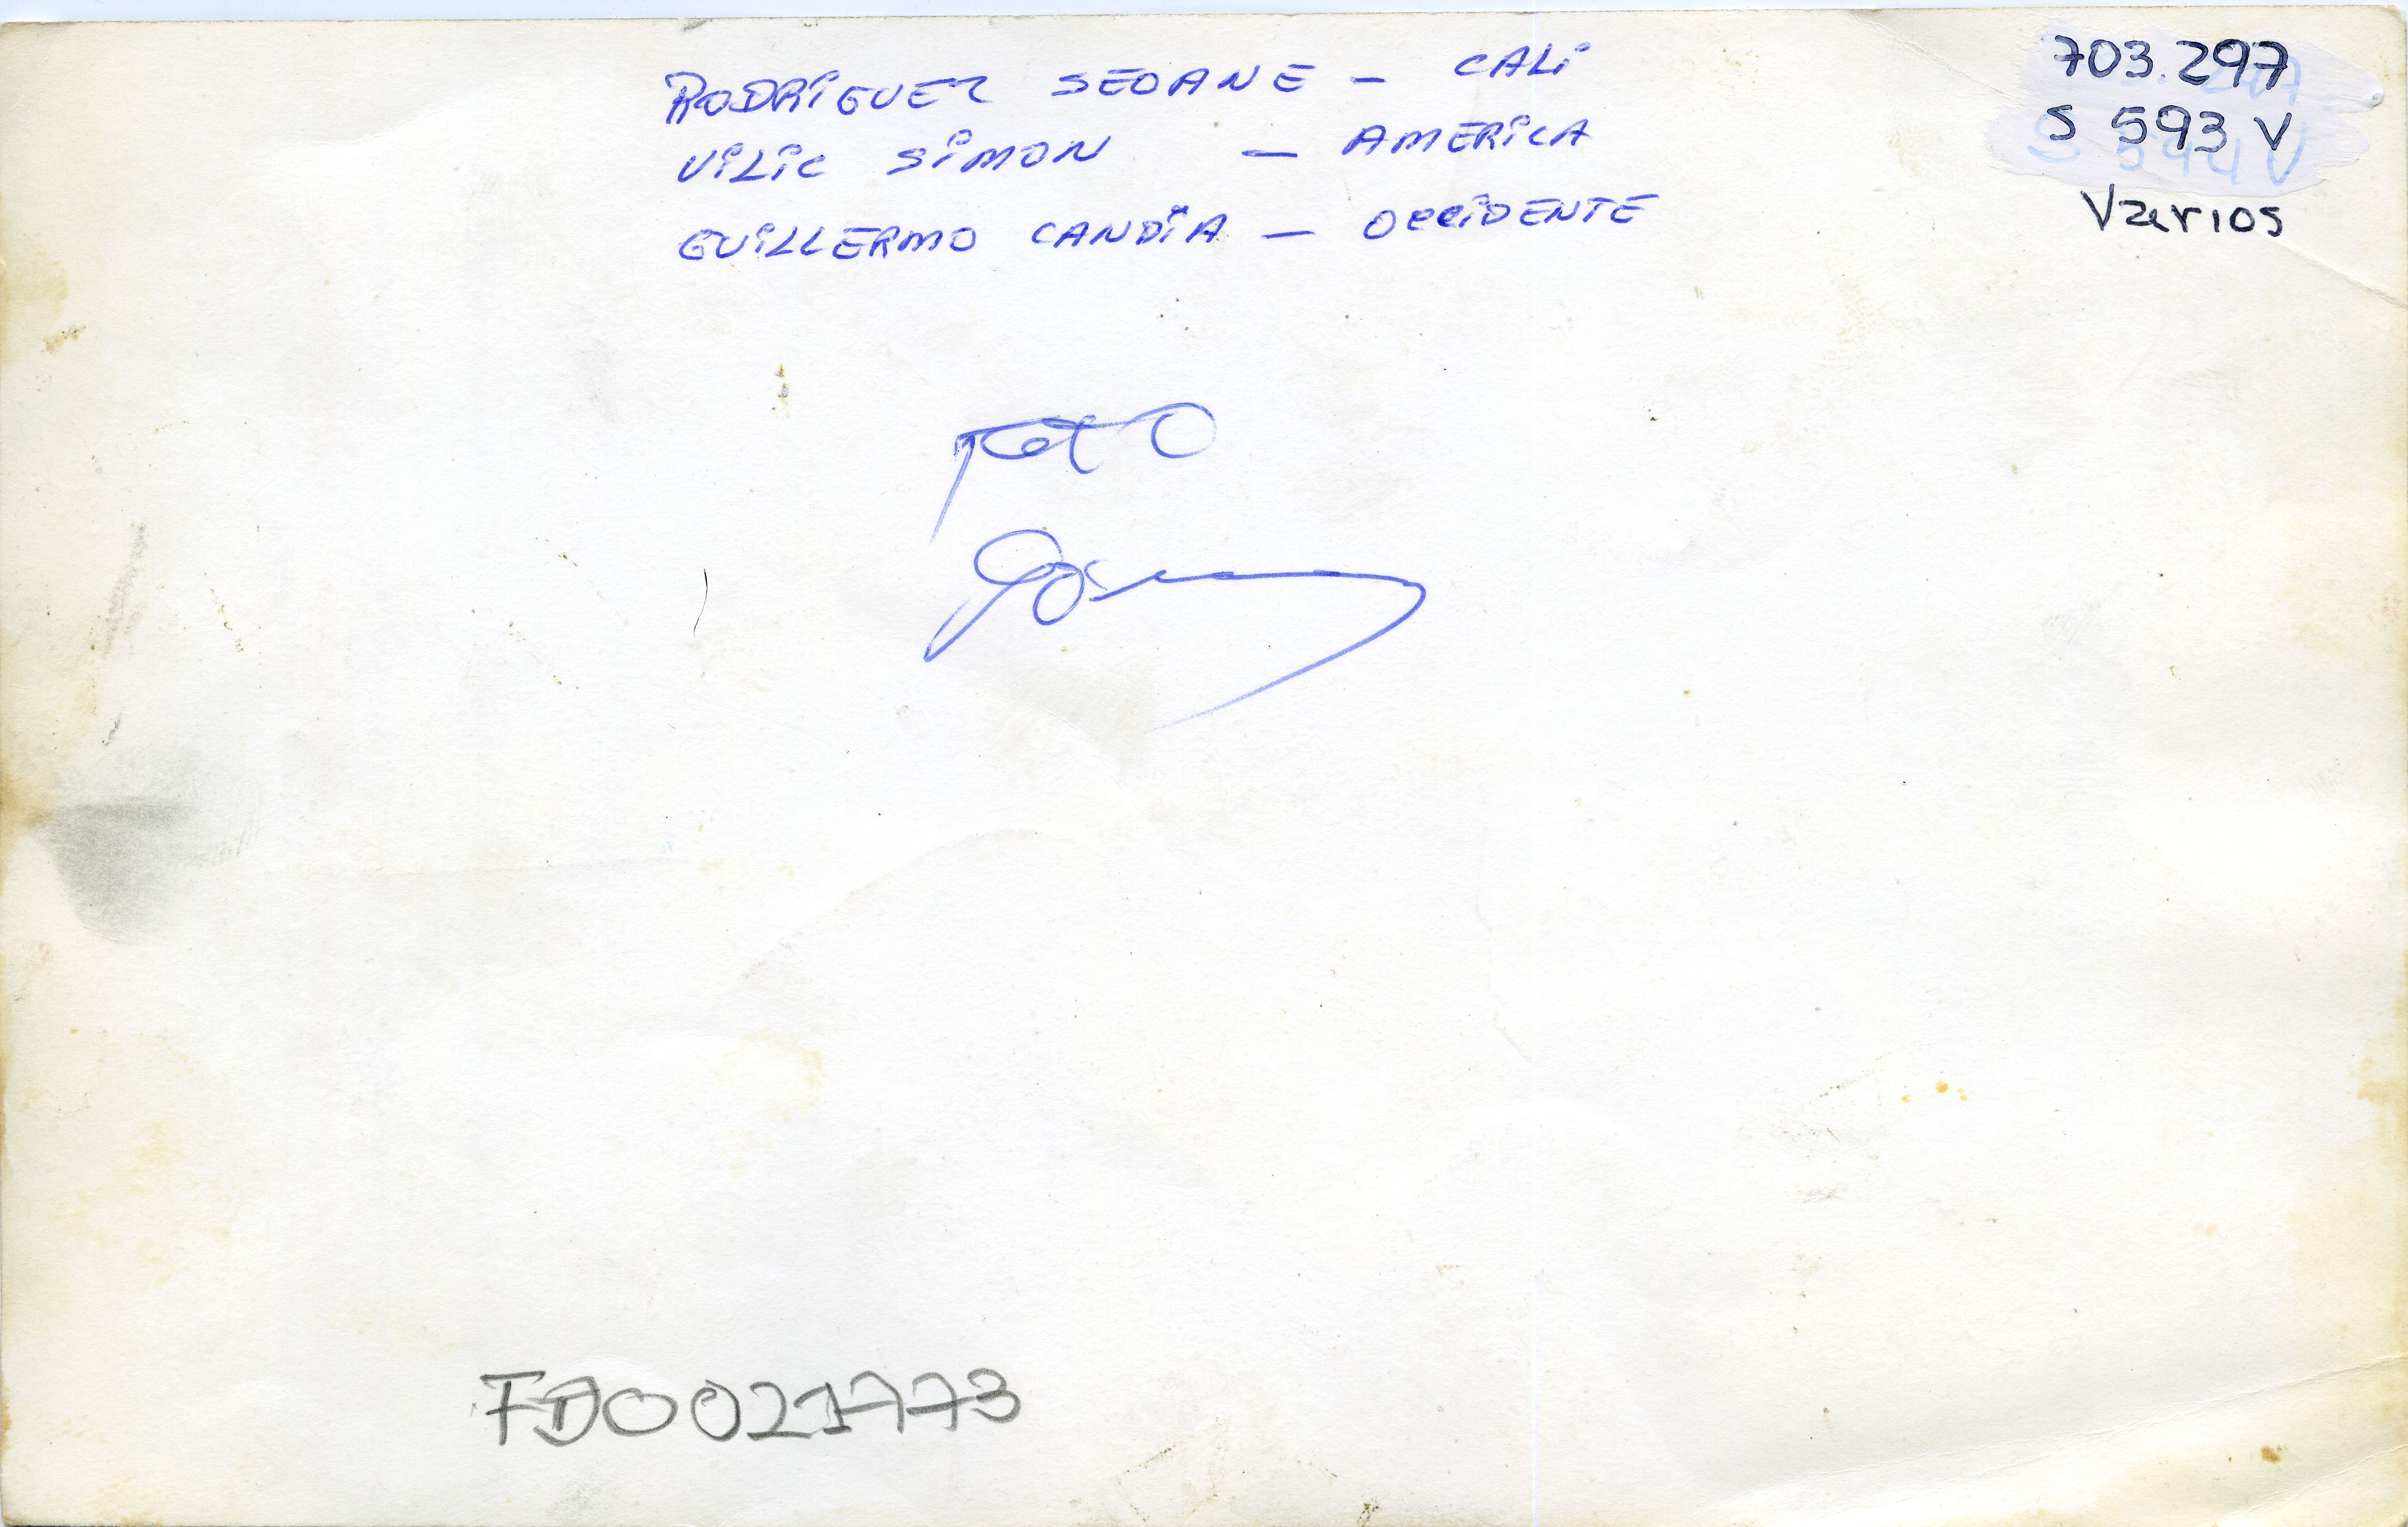 RODRIGUEZ SEOANE - CALI
VILIC SIMON - AMERICA
GUILLERMO CANDIA - OCCIDENTE
703.297
S 593 V
Varios
Foto
FD0021773